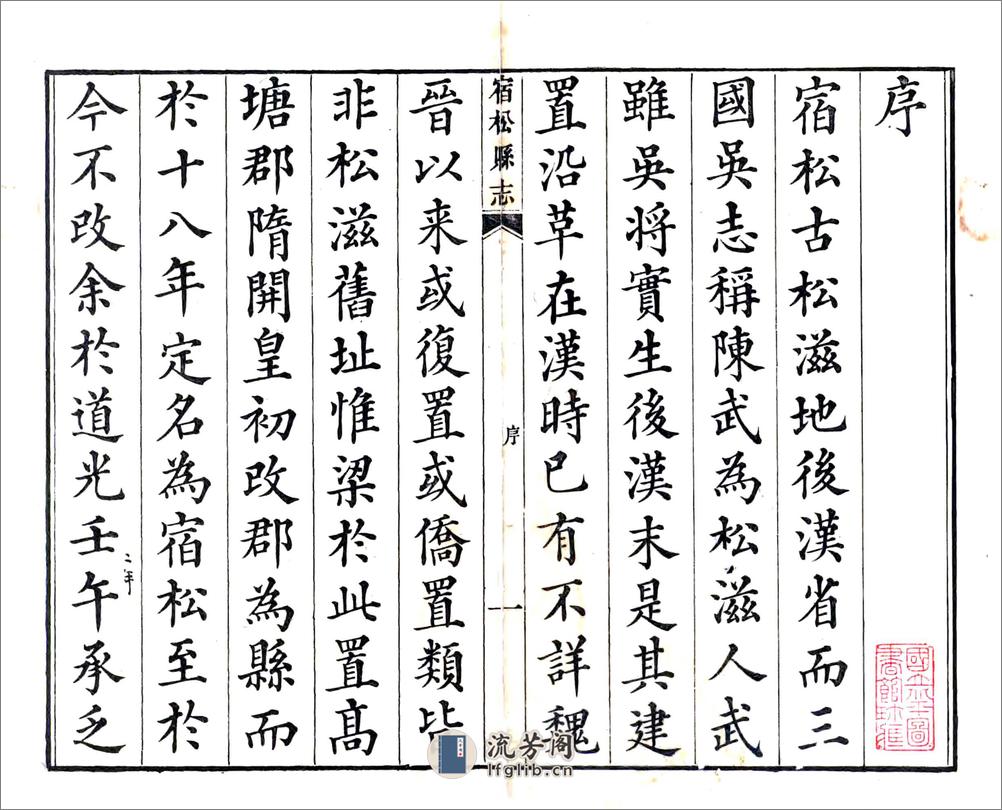 序
宿松古松滋地後漢省而三
國吳志稱陳武為松滋人武
雖吳將實生後漢末是其建
置沿革在漢時已有不詳魏
宿松縣志
序
一
晉以来或復置或僑置類皆
非松滋舊址惟梁於此置高
塘郡隋開皇初改郡為縣而
於十八年定名為宿松至於
今不改余於道光壬午承乏
二年
流芳阁
lfglib.cn